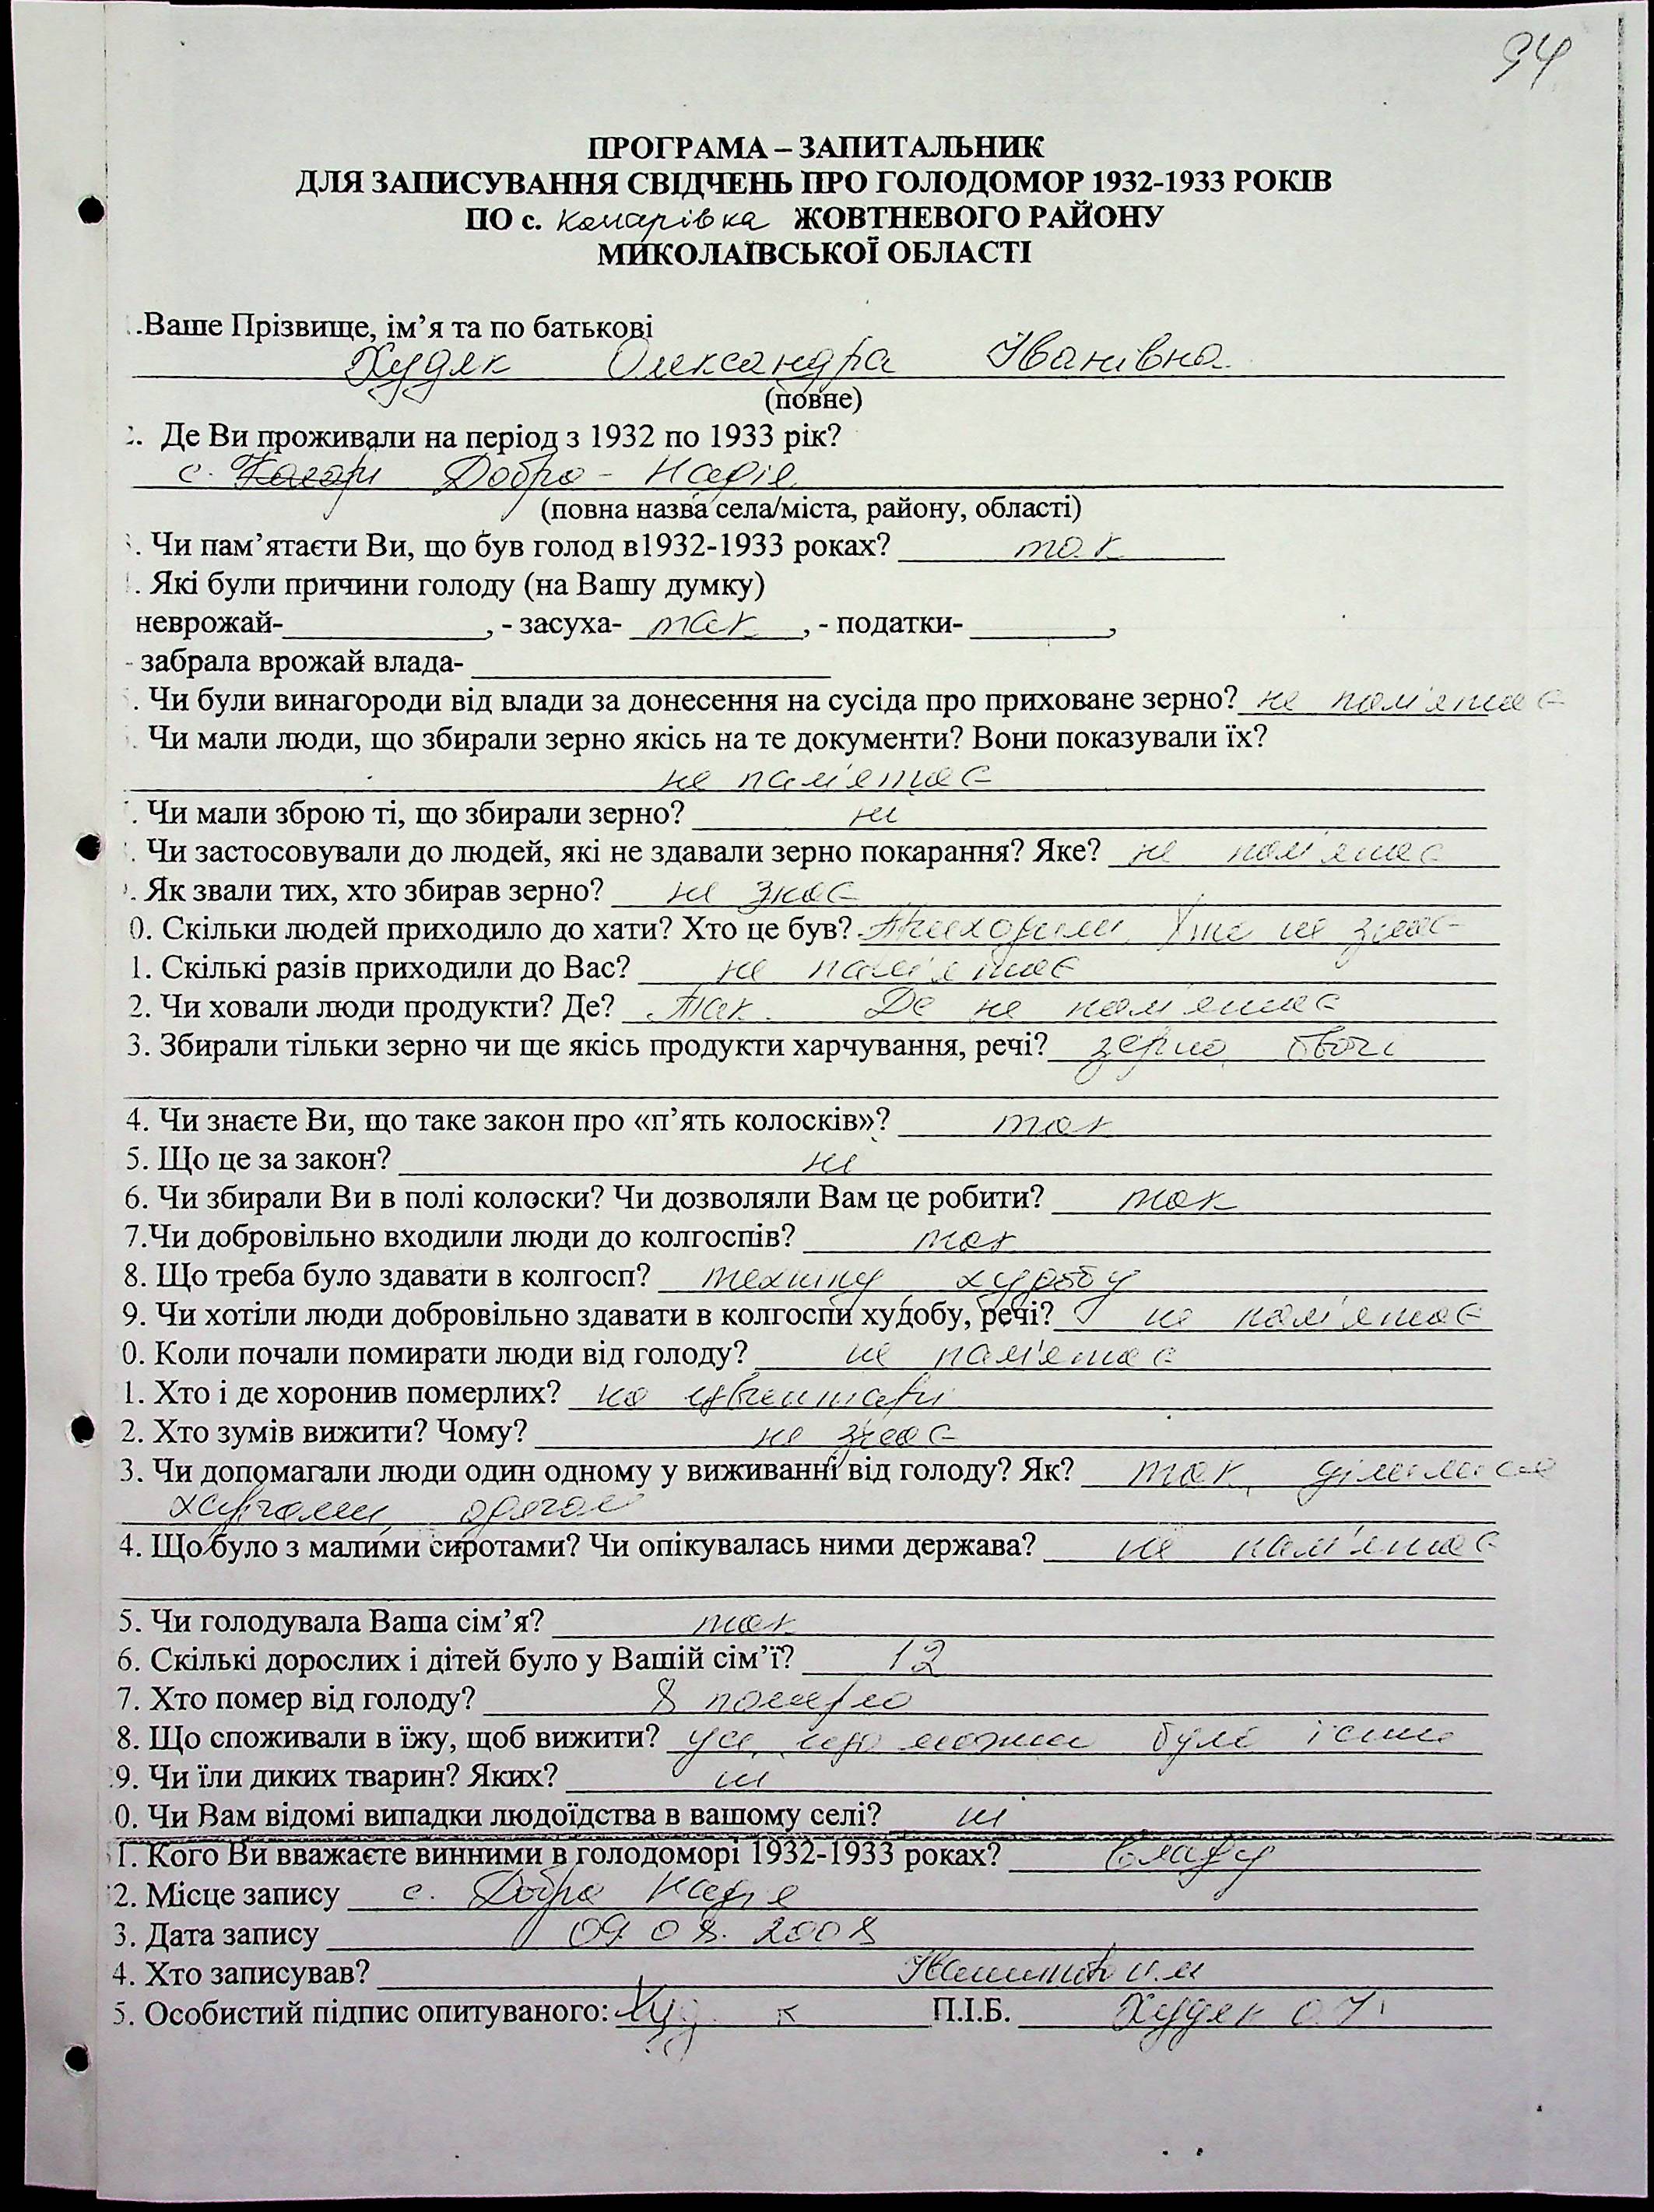 94
ПРОГРАМА – ЗАПИТАЛЬНИК
ДЛЯ ЗАПИСУВАННЯ СВІДЧЕНЬ ПРО ГОЛОДОМОР 1932-1933 РОКІВ
ПО с. Комарівка ЖОВТНЕВОГО РАЙОНУ
МИКОЛАЇВСЬКОЇ ОБЛАСТІ
.Ваше Прізвище, ім’я та по батькові
Худяк Олександра Іванівна
(повне)
. Де Ви проживали на період з 1932 по 1933 рік?
с. Добра - Надія
(повна назва села/міста, району, області)
. Чи пам’ятаєти Ви, що був голод в1932-1933 роках? так
. Які були причини голоду (на Вашу думку)
неврожай- , - засуха- так , - податки- ,
- забрала врожай влада-
. Чи були винагороди від влади за донесення на сусіда про приховане зерно? не пам'ятає
. Чи мали люди, що збирали зерно якісь на те документи? Вони показували їх?
не пам'ятає
. Чи мали зброю ті, що збирали зерно? ні
. Чи застосовували до людей, які не здавали зерно покарання? Яке? не пам'ятає
. Як звали тих, хто збирав зерно? не знає
0. Скільки людей приходило до хати? Хто це був? Приходили, Хто не знає
1. Скількі разів приходили до Вас? не пам'ятає
2. Чи ховали люди продукти? Де? Так. Де не пам'ятає
3. Збирали тільки зерно чи ще якісь продукти харчування, речі? зерно, овочі
4. Чи знаєте Ви, що таке закон про «п’ять колосків»? так
5. Що це за закон? ні
6. Чи збирали Ви в полі колоски? Чи дозволяли Вам це робити? так
7.Чи добровільно входили люди до колгоспів? так
8. Що треба було здавати в колгосп? техніку, худобу
9. Чи хотіли люди добровільно здавати в колгоспи худобу, речі? не пам'ятає
0. Коли почали помирати люди від голоду? не пам'ятає
1. Хто і де хоронив померлих? на цвентарі
2. Хто зумів вижити? Чому? не знає
3. Чи допомагали люди один одному у виживанні від голоду? Як? так, ділилися
харчами, одягом
4. Що було з малими сиротами? Чи опікувалась ними держава? не пам'ятає
5. Чи голодувала Ваша сім’я? так
6. Скількі дорослих і дітей було у Вашій сім’ї? 12
7. Хто помер від голоду? 8 померло
8. Що споживали в їжу, щоб вижити? усе, що можна було їсти
9. Чи їли диких тварин? Яких? ні
0. Чи Вам відомі випадки людоїдства в вашому селі? ні
1. Кого Ви вважаєте винними в голодоморі 1932-1933 роках? владу
2. Місце запису с. Добра Надія
3. Дата запису 09.08.2008
4. Хто записував?
5. Особистий підпис опитуваного: Худ к П.І.Б. Худяк О.І.